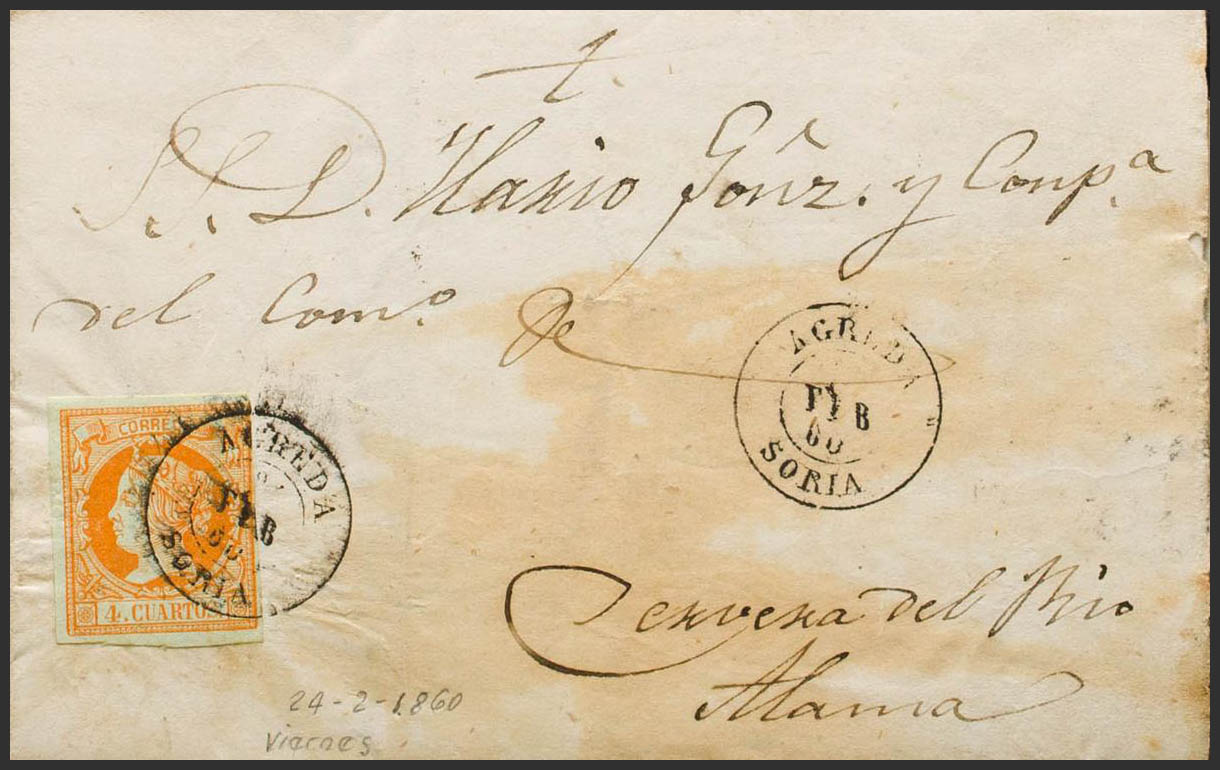 t.
S.S. D. Ilario Gonz. y Compª
del Comº de
AGREDA
FEB
60
SORIA
CORREOS
AGREDA
FEB
60
SORIA
4. CUARTOS
Cervera del Rio
Alama
24-2-1860
Viernes